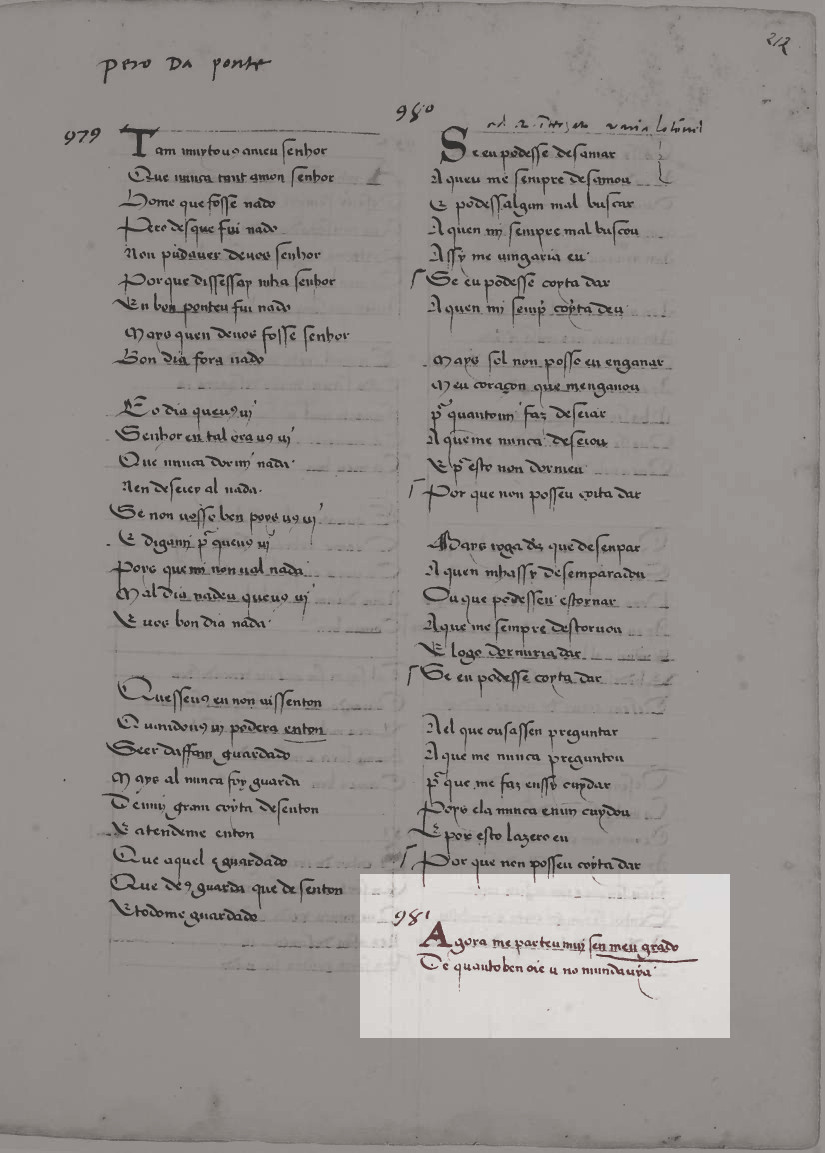 212
Pero Da ponte
979
Tam muytou9 ameu senhor
Que nunca tant amon senhor
Home que fosse nado
Pero des que fui nado
Non pud auer deuos senhor
Por que dissessay mha senhor
En bon ponteu fui nado
Mays quen deuos fosse senhor
Bon dia fora nado
Eo dia queu9 ui
Senhor en tal ora u9 ui
Que nunca dormi nada
Nen deseiey al nada
Se non uosso ben poys u9 ui
E digami queu9 ui
Poys que mi non ual nada
Mal dia nadeu queu9 ui
E uos bon dia nada
Quesseu9 eu non uissenton
Quandou9 ui podera enton
Seer daffam guardado
Mays al nunca foy guarda
Te mui gram coyta desenton
E atendeme enton
Que aquel guardado
Que de9 guarda que de senton
E todome guardado
980
Se eu podesse desamar
A queu me sempre desamou
E podessalgun mal buscar
A quen mi sempre mal buscou
Assy me uingaria eu
Se eu podesse coyta dar
A quen mi semp coyta deu
Mays sol non posso eu enganar
Meu coraçon que menganou
p quantomi faz deseiar
A queme nunca deseiou
E p esto non dormeu
Por que non posseu coita dar
Mays roga ds que desenpar
A quen mhassy desemparadou
Ou que podesseu estornar
A que me sempre destoruou
E logo dormiria dar
Se eu podesse coyta dar
Nel que ousassen preguntar
A que me nunca preguntou
p que me faz enssy cuydar
Poys ela nunca enmi cuydou
E por esto lazero eu
Por que non posseu coyta dar
981
Agora me parteu mui sen meu grado
De quanto ben oie u no mundauya